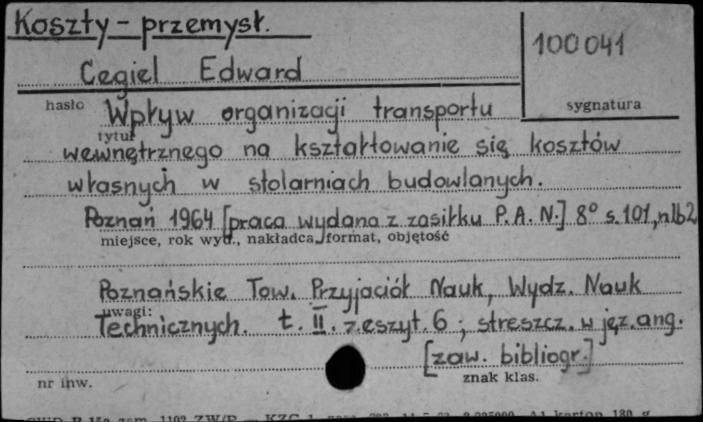 Koszty - przemysł.
100 041
Cegiel Edward
hasło
sygnatura
Wpływ organizacji transportu
tytuł
wewnętrznego na kształtowanie się kosztów
własnych w stolarniach budowlanych.
Poznań 1964 [praca wydana z zasiłku P.A.N.] 8° s. 101, nlb 2
miejsce, rok wyd., nakładca, format, objętość
Poznańskie Tow. Przyjaciół Nauk, Wydz. Nauk
uwagi:
Technicznych. t. II. zeszyt. 6; streszcz. w jęz. ang.
[zaw. bibliogr.]
nr inw.
znak klas.